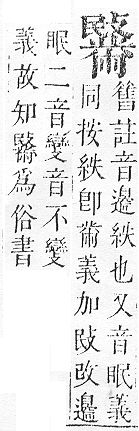 舊註音邊紩也又音眠義
同按紩卽黹義加改邊
眠二音變音不變
義故知爲俗書